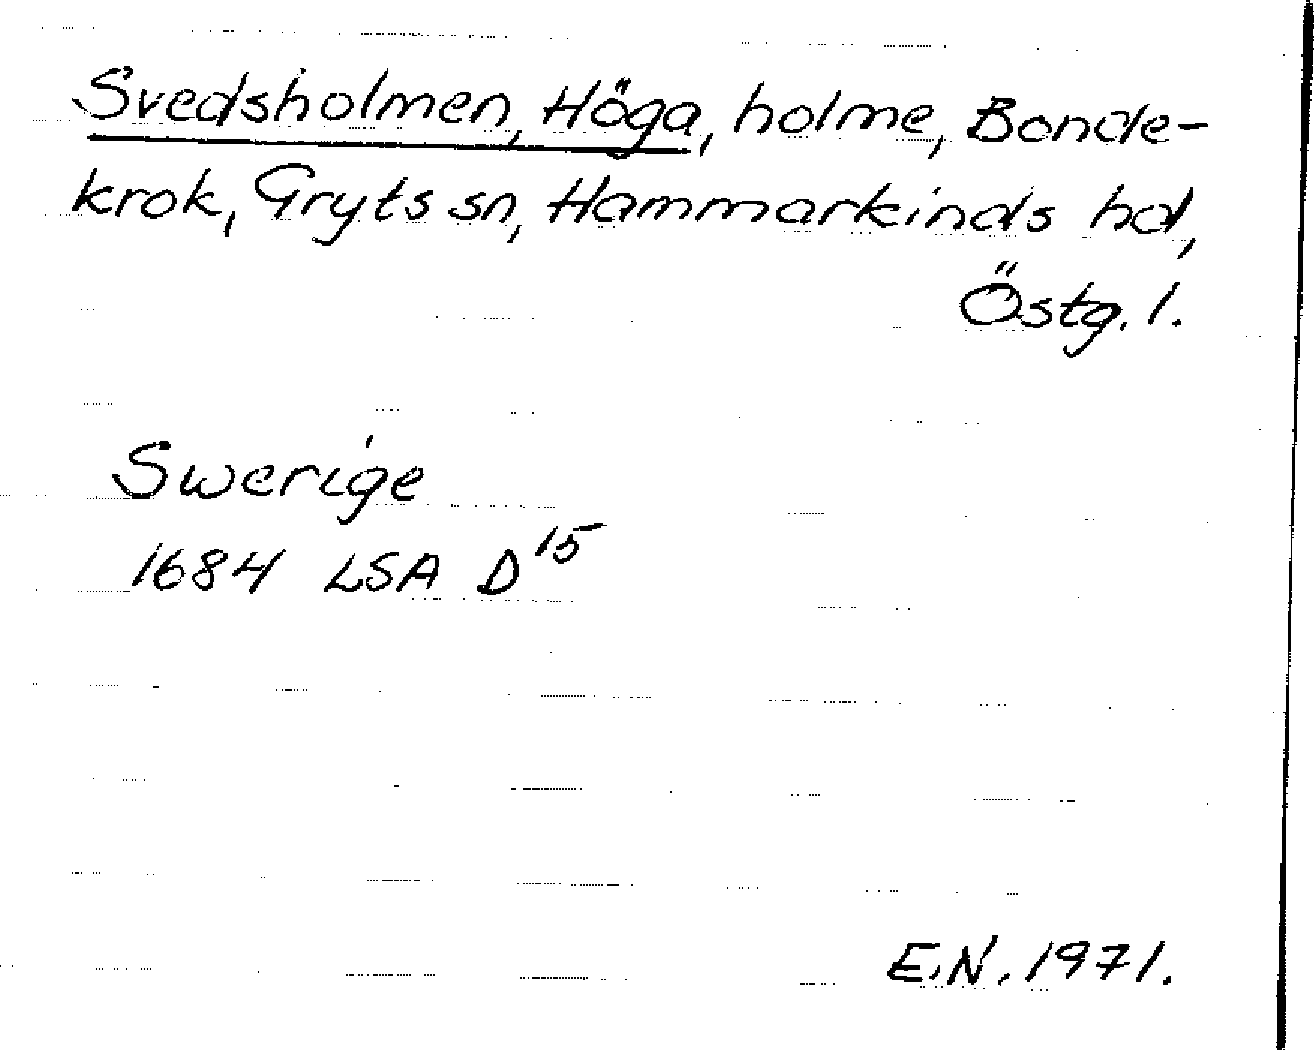 Svedsholmen, Höga, holme, Bonde-
krok, Gryts sn, Hammarkinds hd,
Östg. l.
Swerige
1684 LSA D15
E.N. 1971.